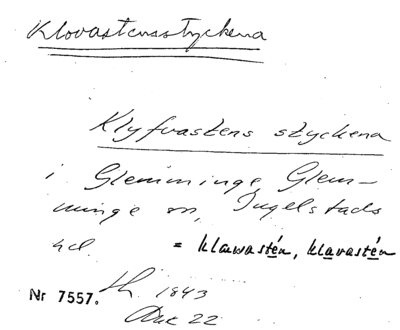 Klovastensstyckena
Klyfvastens styckena
i Glemminge, Glem-
minge sn, Ingelstads
hd. = klawastén, klavastén
Nr 7557. Lh. 1843
Akt 22